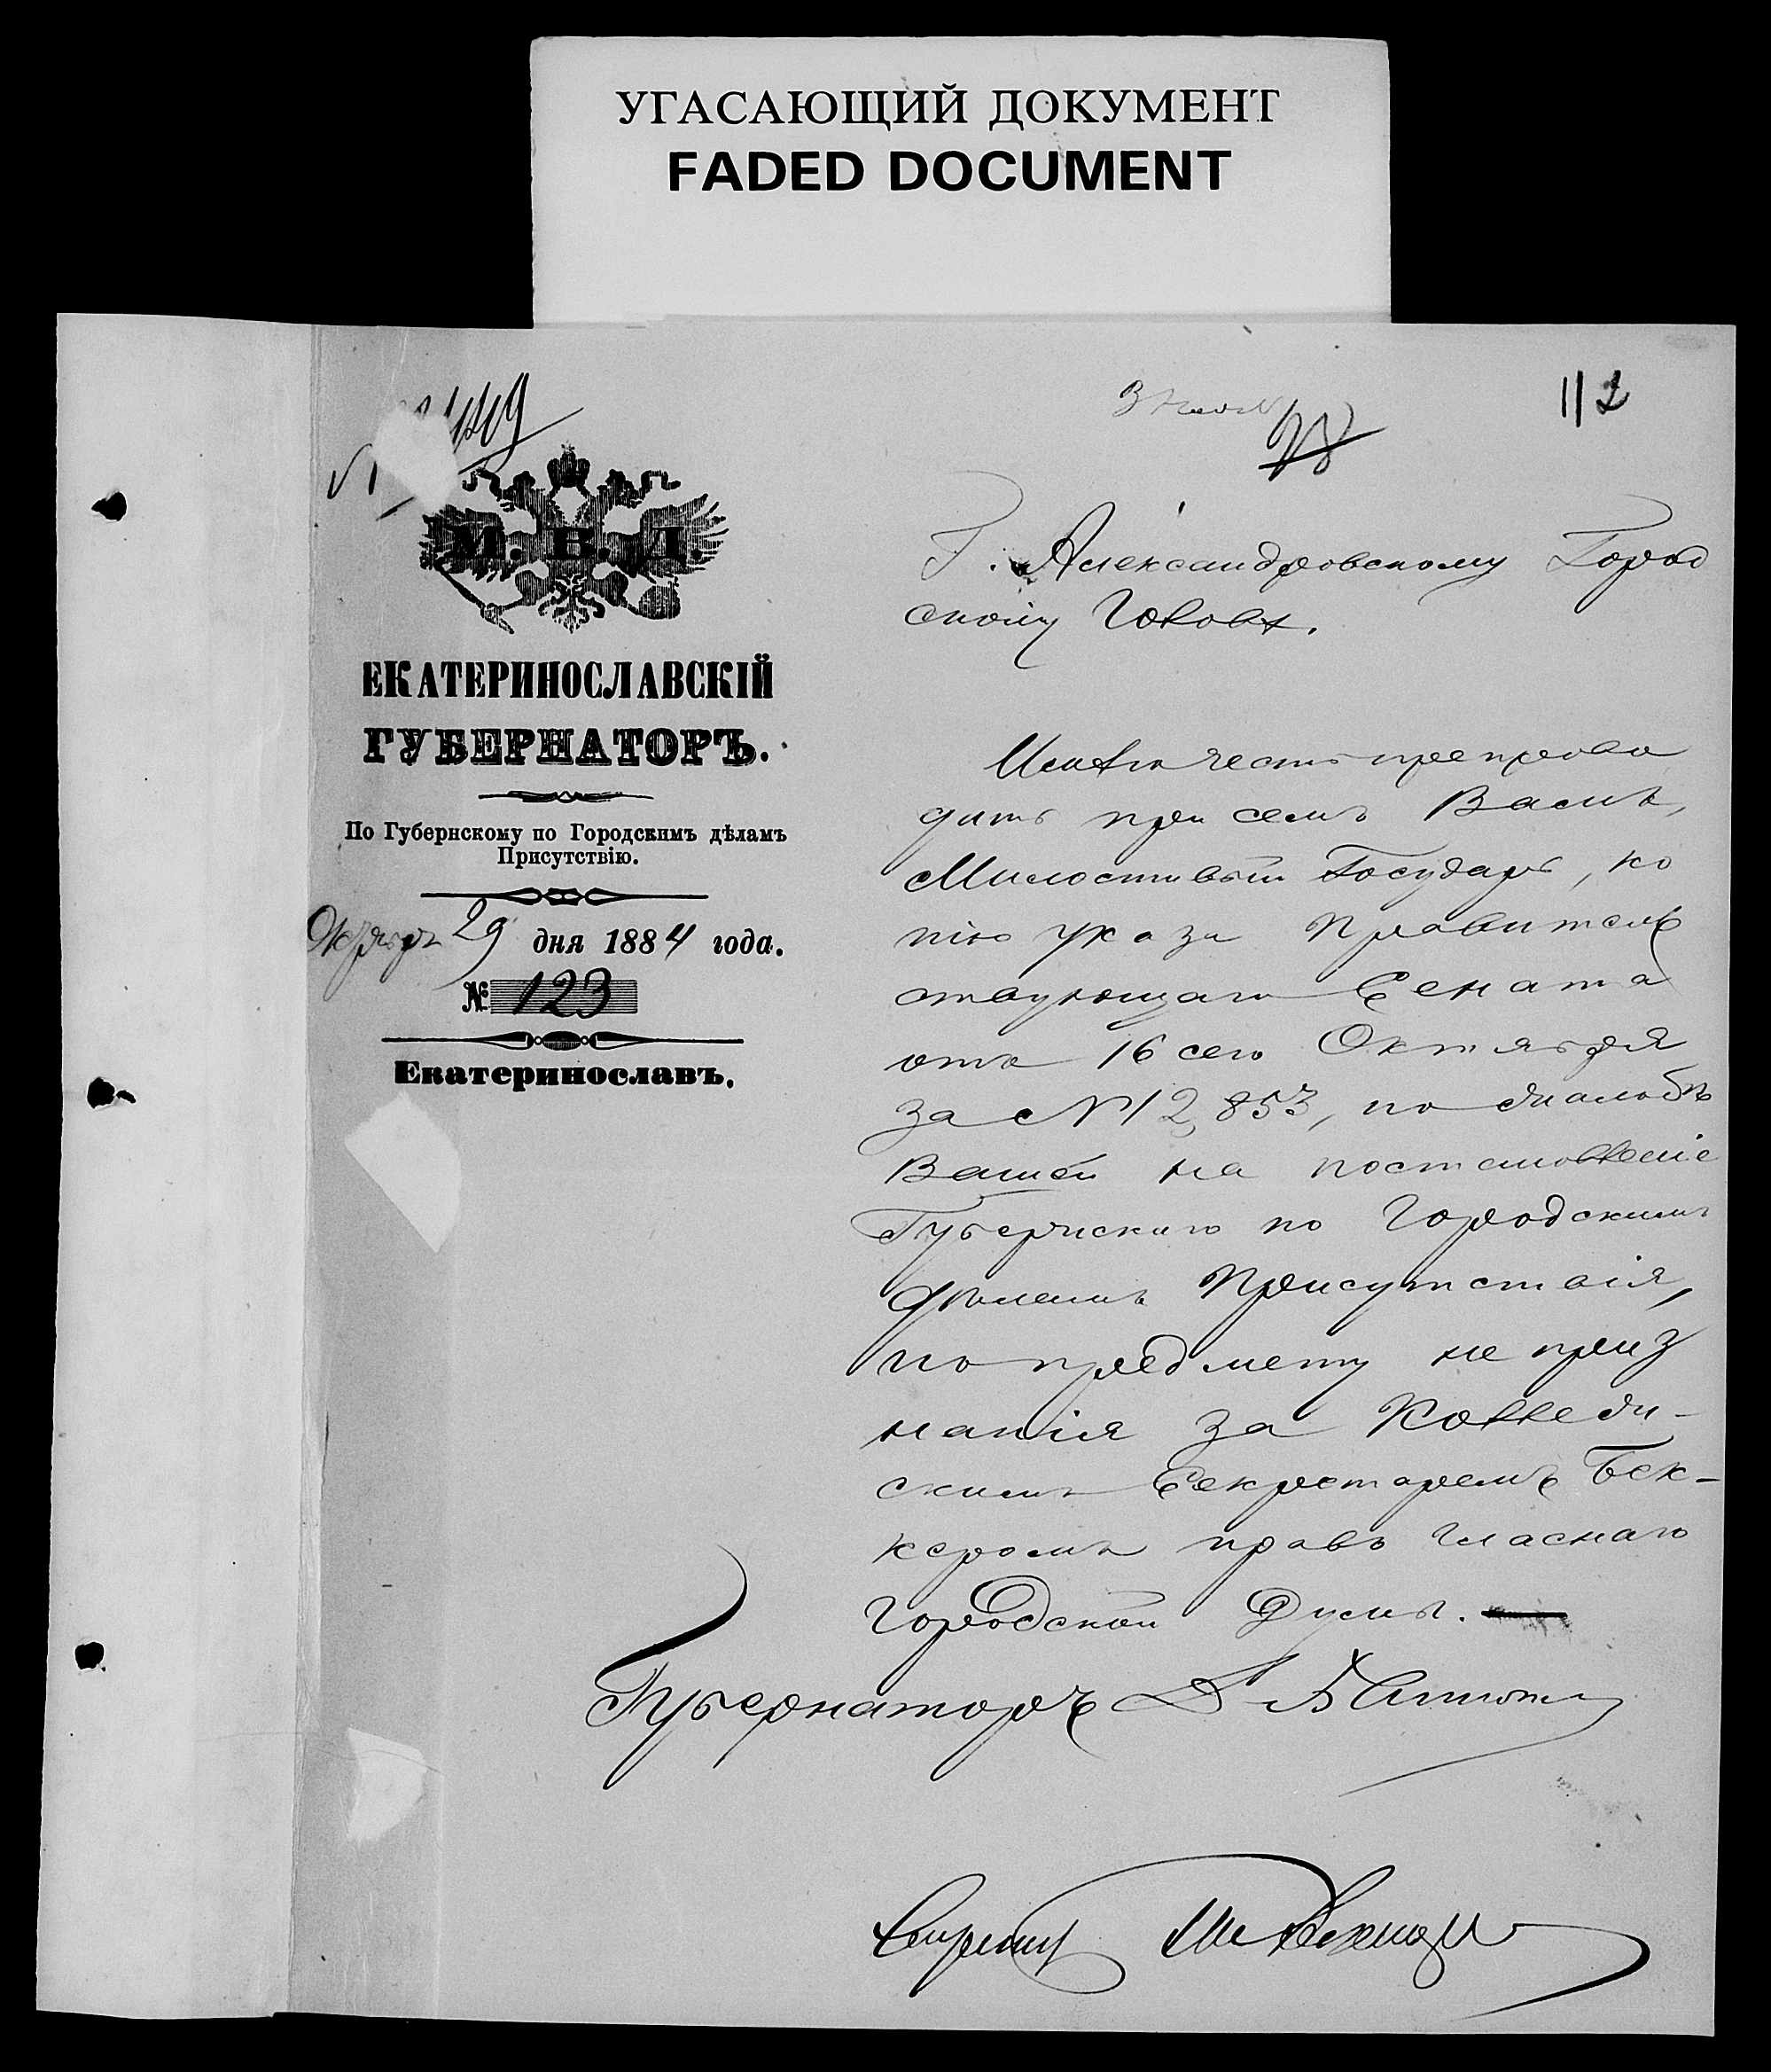 УГАСАЮЩИЙ ДОКУМЕНТ
FADED DOCUMENT
112
М. В. Д.
ЕКАТЕРИНОСЛАВСКІЙ
ГУБЕРНАТОРЪ.
По Губернскому по Городскимъ дѣламъ
Присутствію.
Октября 29 дня 1884 года.
№ 123
Екатеринославъ.
Г. Александровскому Город
скому Головѣ.
Имѣю честь препрово
дить при семъ Вамъ,
Милостивый Государь, ко
пію указа Правитель
ствующаго Сената
отъ 16 сего Октября
за № 12,853, по жалобѣ
Вашей на постановленіе
Губернскаго по Городскимъ
дѣламъ Присутствія,
по предмету не приз
нанія за Коллеж-
скимъ Секретаремъ Бек-
керомъ правъ гласнаго
Городской Думы.
Губернаторъ
Секретарь